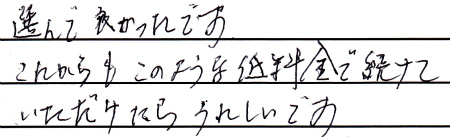 選んで良かったです
これからもこのような低料金で続けて
いただけたらうれしいです